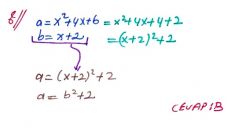 8// a = x²+4x+6 = x²+4x+4+2
b = x+2 = (x+2)²+2
a = (x+2)²+2
a = b²+2
CEVAP: B